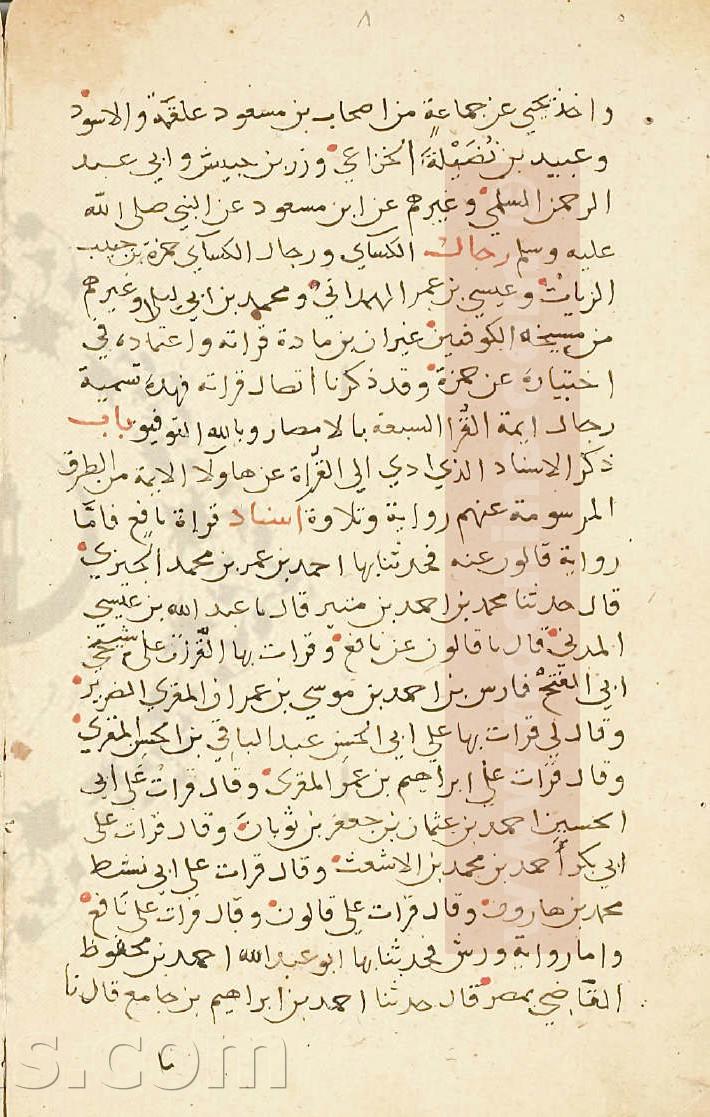 ٨
واخذ يحيي عن جماعة من اصحاب بن مسعود علقمة والاسود
وعبيد بن نُضَيْلة الخزاعي وزر بن حبيش وابي عبد
الرحمن السلمي وغيرهم عن ابن مسعود عن النبي صلى الله
عليه وسلم رجال الكسآي ورجال الكسآي حمزة بن حبيب
الزيات وعيسي بن عمر الهمداني ومحمد بن ابي ليلى وغيرهم
من مسيخه الكوفيين غير ان بن مادة قراته واعتماده في
اختياره عن حمزة وقد ذكرنا اتصال قراته فهذه تسمية
رجال ايمة القُرا السبعة بالامصار وبالله التوفيق باب
ذكر الاسناد الذي ادي الي القُراة عن هاولآ الايمة من الطرق
المرسومة عنهم رواية وتلاوة اسناد قراة نافع فامَّا
رواية قالون عنه فحدثنا بها احمد بن عمر بن محمد الجيزي
قال حدثنا محمد بن احمد بن منير قال نا عبد الله بن عيسي
المدني قال نا قالون عن نافع وقرات بها القرآن علي شيخي
ابي الفتح فارس بن احمد بن موسي بن عمران المقري الضرير
وقال لي قرات بها علي ابي الحسن عبد الباقي بن الحسن المقري
وقال قرات علي ابراهيم بن عمر المقري وقال قرات علي ابي
الحسين احمد بن عثمان بن جعفر بن ثوبان وقال قرات علي
ابي بكر أحمد بن محمد بن الاشعث وقال قرات علي ابي نشيط
محمد بن هارون وقال قرات علي قالون وقال قرات علي نافع
واما رواية ورش فحدثنا بها ابو عبد الله احمد بن محفوظ
القاضي بمصر قال حدثنا احمد بن ابراهيم بن جامع قال نا
s.com